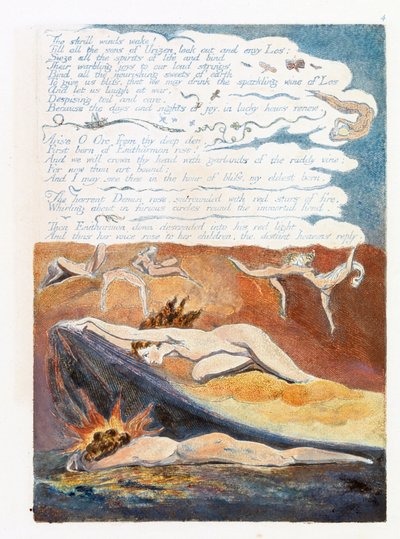 4
The shrill winds wake!
Till all the sons of Urizen look out and envy Los:
Seize all the spirits of life and bind
Their warbling joys to our loud strings
Bind all the nourishing sweets of earth
To give us bliss, that we may drink the sparkling wine of Los
And let us laugh at war,
Despising toil and care,
Because the days and nights of joy, in lucky hours renew.
Arise O Orc from thy deep den,
First born of Enitharmon rise!
And we will crown thy head with garlands of the ruddy vine;
For now thou art bound;
And I may see thee in the hour of bliss, my eldest born.
The horrent Demon rose, surrounded with red stars of fire,
Whirling about in furious circles round the immortal fiend.
Then Enitharmon down descended into his red light,
And thus her voice rose to her children, the distant heavens reply.